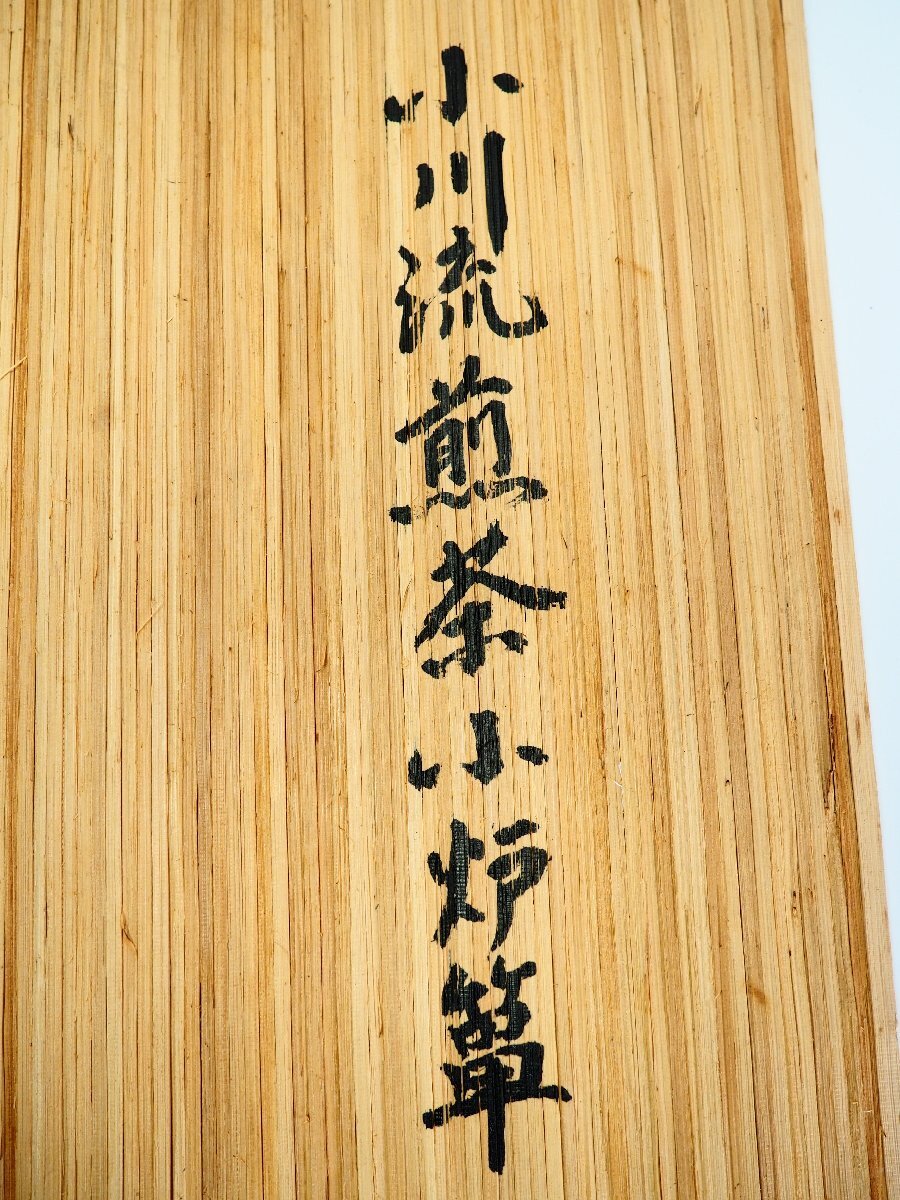 小川流煎茶小炉箪